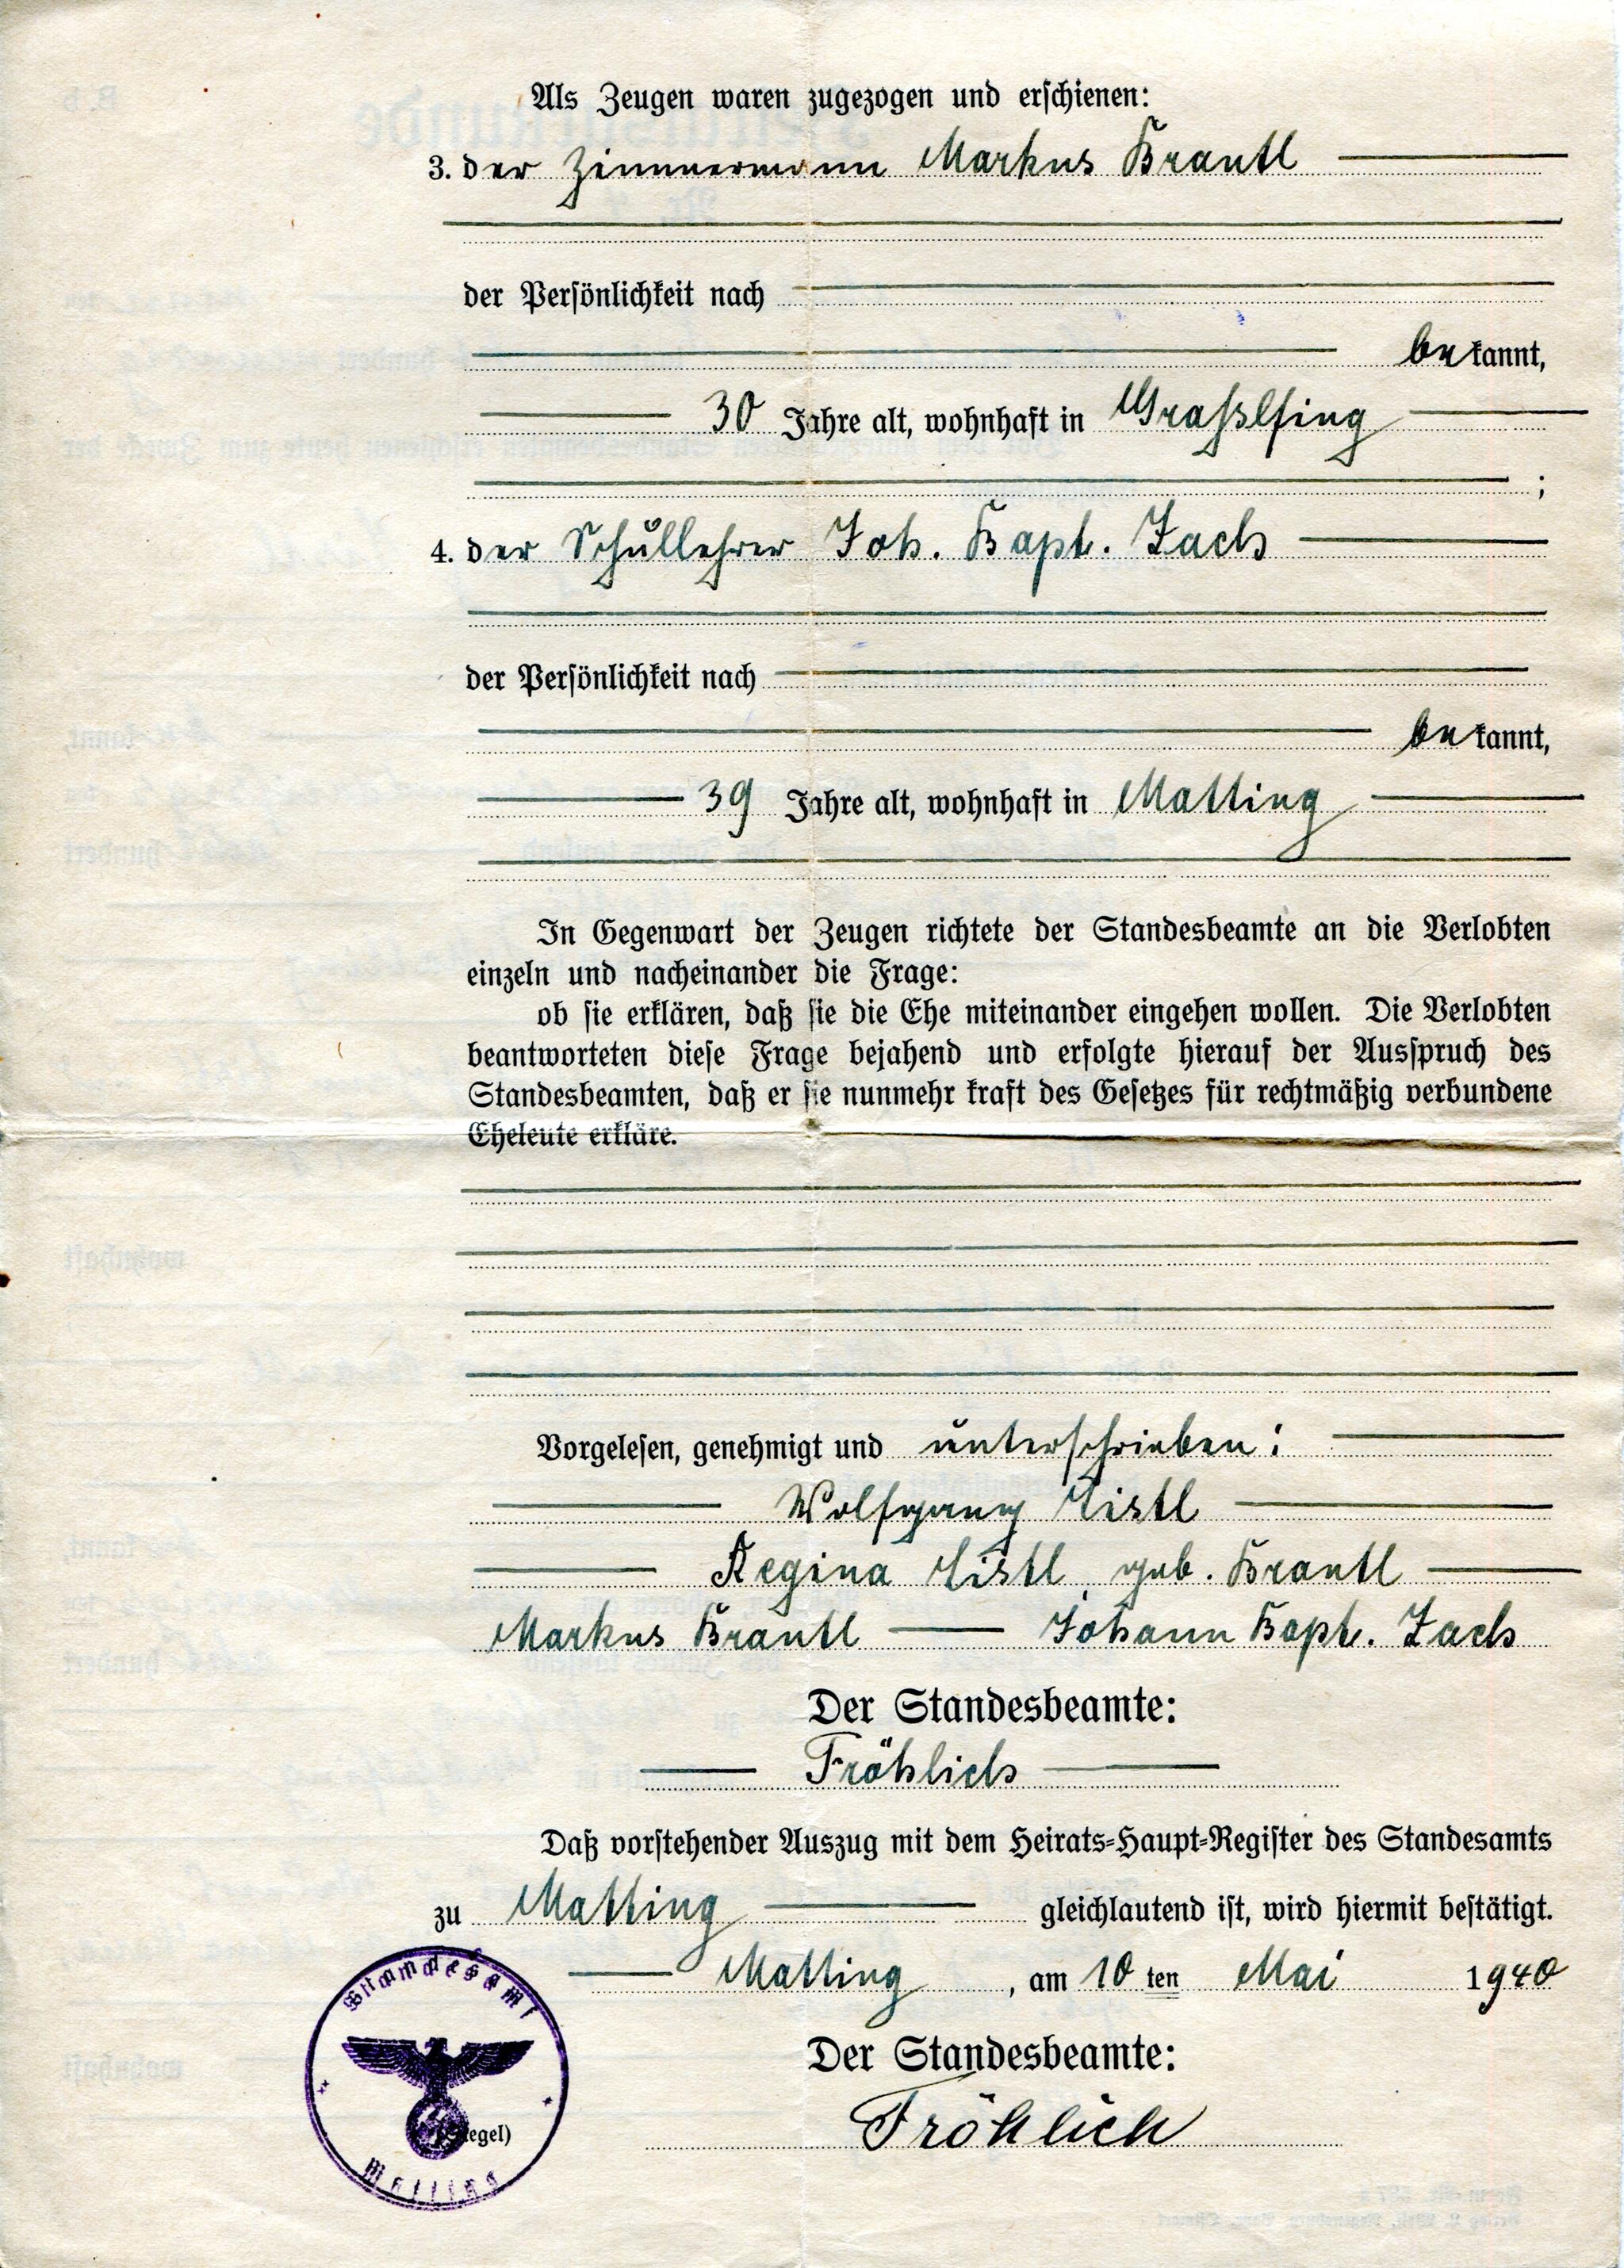 Als Zeugen waren zugezogen und erschienen:
3. der Zimmermann Markus Brantl
der Persönlichkeit nach
bekannt,
30 Jahre alt, wohnhaft in Graßlfing
;
4. der Schullehrer Joh. Bapt. Zach
der Persönlichkeit nach
bekannt,
39 Jahre alt, wohnhaft in Matting
In Gegenwart der Zeugen richtete der Standesbeamte an die Verlobten
einzeln und nacheinander die Frage:
ob sie erklären, daß sie die Ehe miteinander eingehen wollen. Die Verlobten
beantworteten diese Frage bejahend und erfolgte hierauf der Ausspruch des
Standesbeamten, daß er sie nunmehr kraft des Gesetzes für rechtmäßig verbundene
Eheleute erkläre.
Vorgelesen, genehmigt und unterschrieben:
Wolfgang Listl
Regina Listl, geb. Brantl
Markus Brantl Johann Bapt. Zach
Der Standesbeamte:
Fröhlich
Daß vorstehender Auszug mit dem Heirats-Haupt-Register des Standesamts
zu Matting gleichlautend ist, wird hiermit bestätigt.
Matting, am 10ten Mai 1940
Standesamt
Der Standesbeamte:
(Siegel)
Fröhlich
Matting